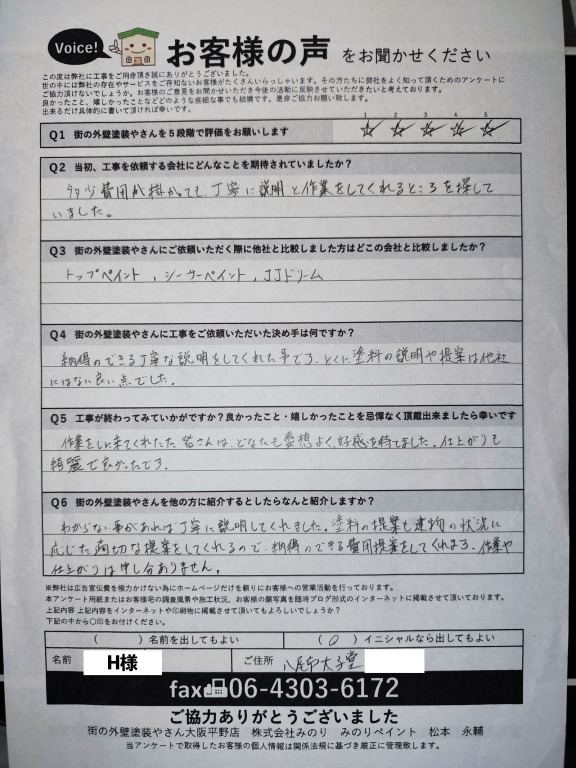 Voice!
お客様の声 をお聞かせください
この度は弊社に工事をご用命頂き誠にありがとうございました。
世の中には弊社の存在やサービスをご存知ないお客様がたくさんいらっしゃいます。その方たちに弊社をよく知って頂くためのアンケートに
ご協力頂けないでしょうか。お客様のご意見をお聞かせいただき今後の活動に反映させていただきたいと考えております。
良かったこと、嬉しかったことなどどのような些細な事でも結構です。是非ご協力お願い致します。
出来るだけ具体的に書いて頂ければ幸いです。
Q1 街の外壁塗装やさんを5段階で評価をお願いします
1 2 3 4 5
☆ ☆ ☆ ☆ ☆
Q2 当初、工事を依頼する会社にどんなことを期待されていましたか?
多少費用が掛かっても、丁寧に説明と作業をしてくれるところを探して
いました。
Q3 街の外壁塗装やさんにご依頼いただく際に他社と比較しました方はどこの会社と比較しましたか?
トップペイント、シーサーペイント、JJドリーム
Q4 街の外壁塗装やさんに工事をご依頼いただいた決め手は何ですか?
納得のできる丁寧な説明をしてくれた事です。とくに塗料の説明や提案は他社
にはない良い点でした。
Q5 工事が終わってみていかがですか?良かったこと・嬉しかったことを忌憚なく頂戴出来ましたら幸いです
作業をしに来てくれたた皆さんは、どなたも愛想よく、好感を持てました。仕上がりも
綺麗で良かったです。
Q6 街の外壁塗装やさんを他の方に紹介するとしたらなんと紹介しますか?
わからない事があれば丁寧に説明してくれました。塗料の提案も建物の状況に
応じた適切な提案をしてくれるので、納得のできる費用提案をしてくれます。作業や
仕上がりは申し分ありません。
※弊社は広告宣伝費を極力かけない為にホームページだけを頼りにお客様への営業活動を行っております。
本アンケート用紙またはお客様宅の調査風景や施工状況、お客様の顔写真を随時ブログ形式のインターネットに掲載させて頂いております。
上記内容 上記内容をインターネットや印刷物に掲載させて頂いてもよろしいでしょうか?
下記の中から〇印をお付けください。
( )名前を出してもよい (○)イニシャルなら出してもよい
名前 H様 ご住所 八尾市太子堂
fax 06-4303-6172
ご協力ありがとうございました
街の外壁塗装やさん大阪平野店 株式会社みのり みのりペイント 松本 永輔
当アンケートで取得したお客様の個人情報は関係法規に基づき厳正に管理致します。